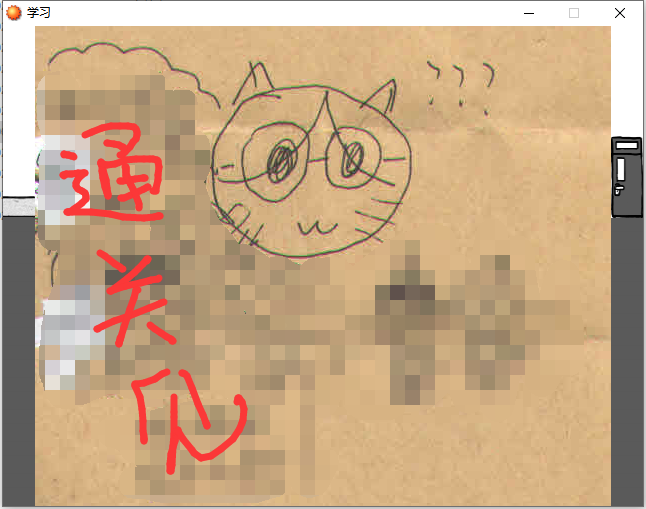 学习
???
通
关
见